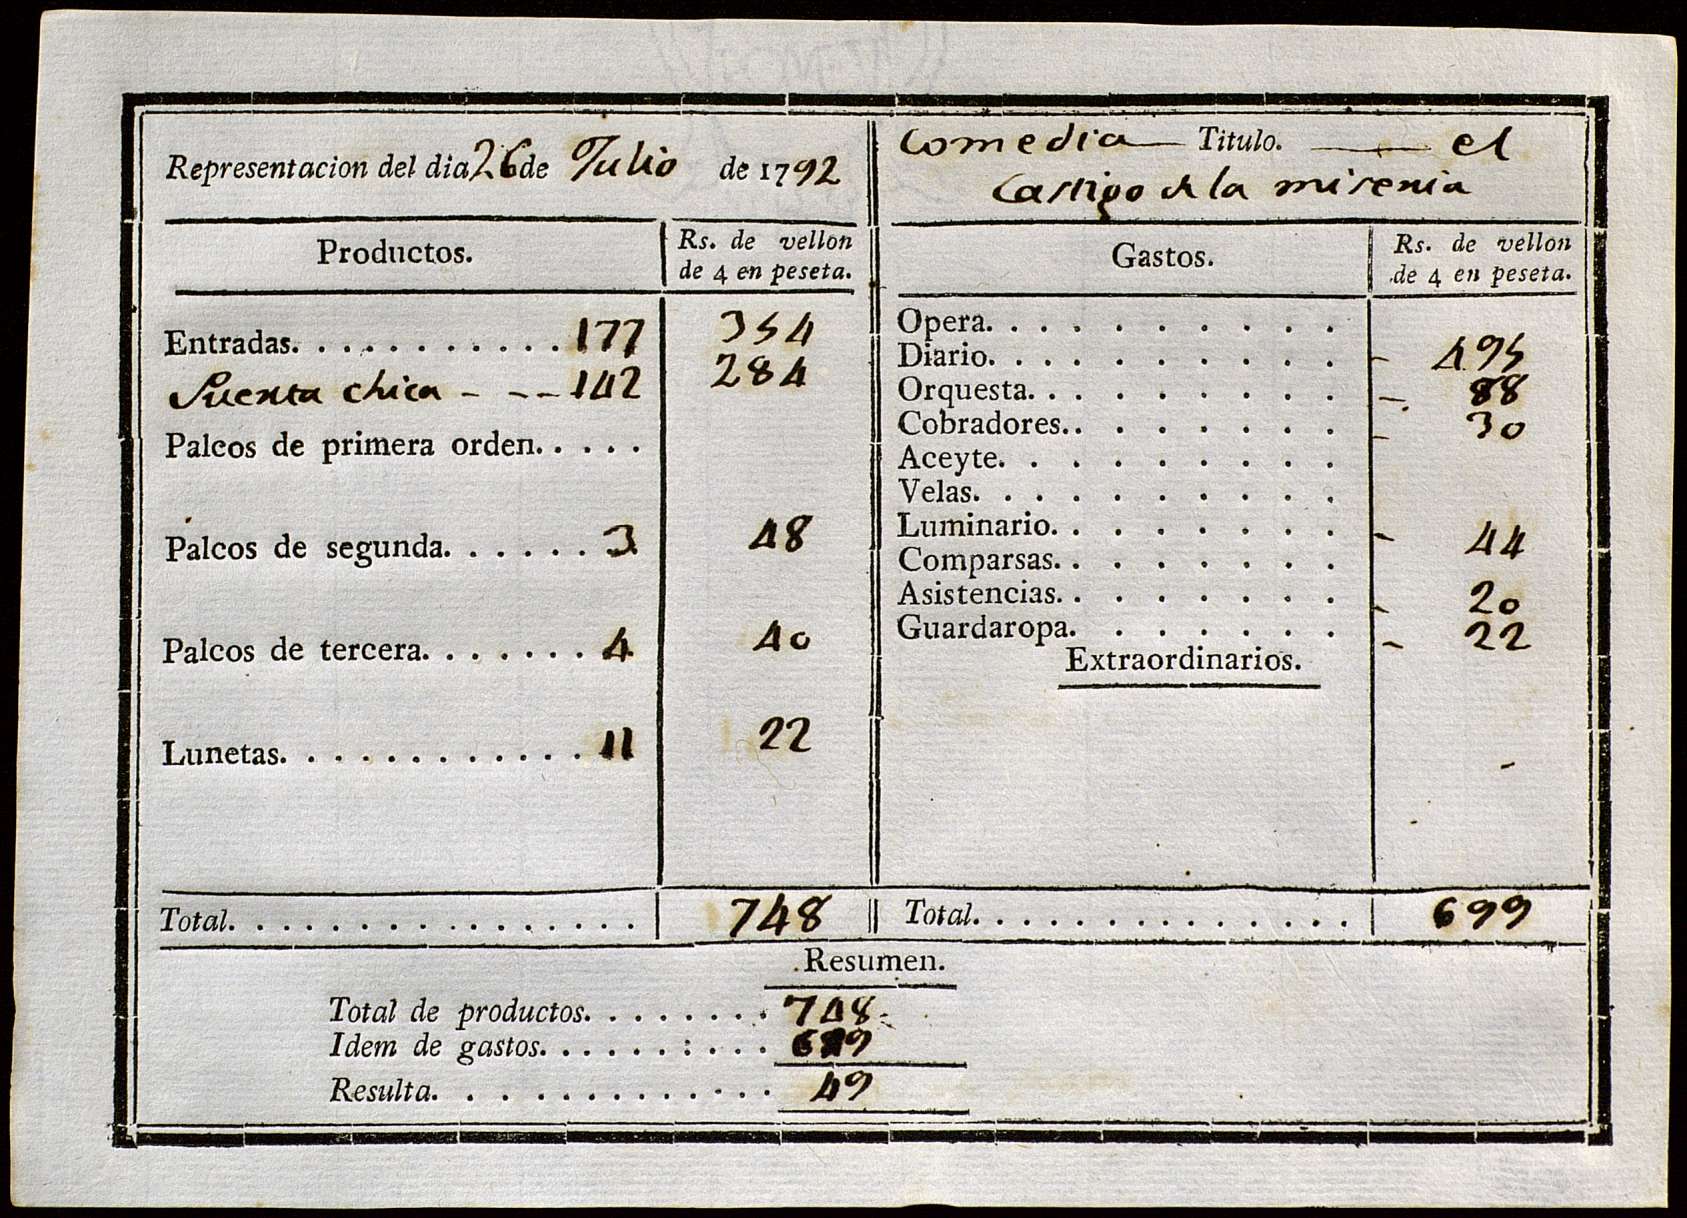 Representacion del dia 26 de Julio de 1792
Comedia Titulo. el
Castigo de la miseria
Productos.
Rs. de vellon
de 4 en peseta.
Entradas. 177 354
Puerta chica 142 284
Palcos de primera orden.
Palcos de segunda. 3 48
Palcos de tercera. 4 40
Lunetas. 11 22
Total. 748
Gastos.
Rs. de vellon
de 4 en peseta.
Opera.
Diario. 495
Orquesta. 88
Cobradores. 30
Aceyte.
Velas.
Luminario. 44
Comparsas.
Asistencias. 20
Guardaropa. 22
Extraordinarios.
Total. 699
Resumen.
Total de productos. 748
Idem de gastos. 699
Resulta. 49